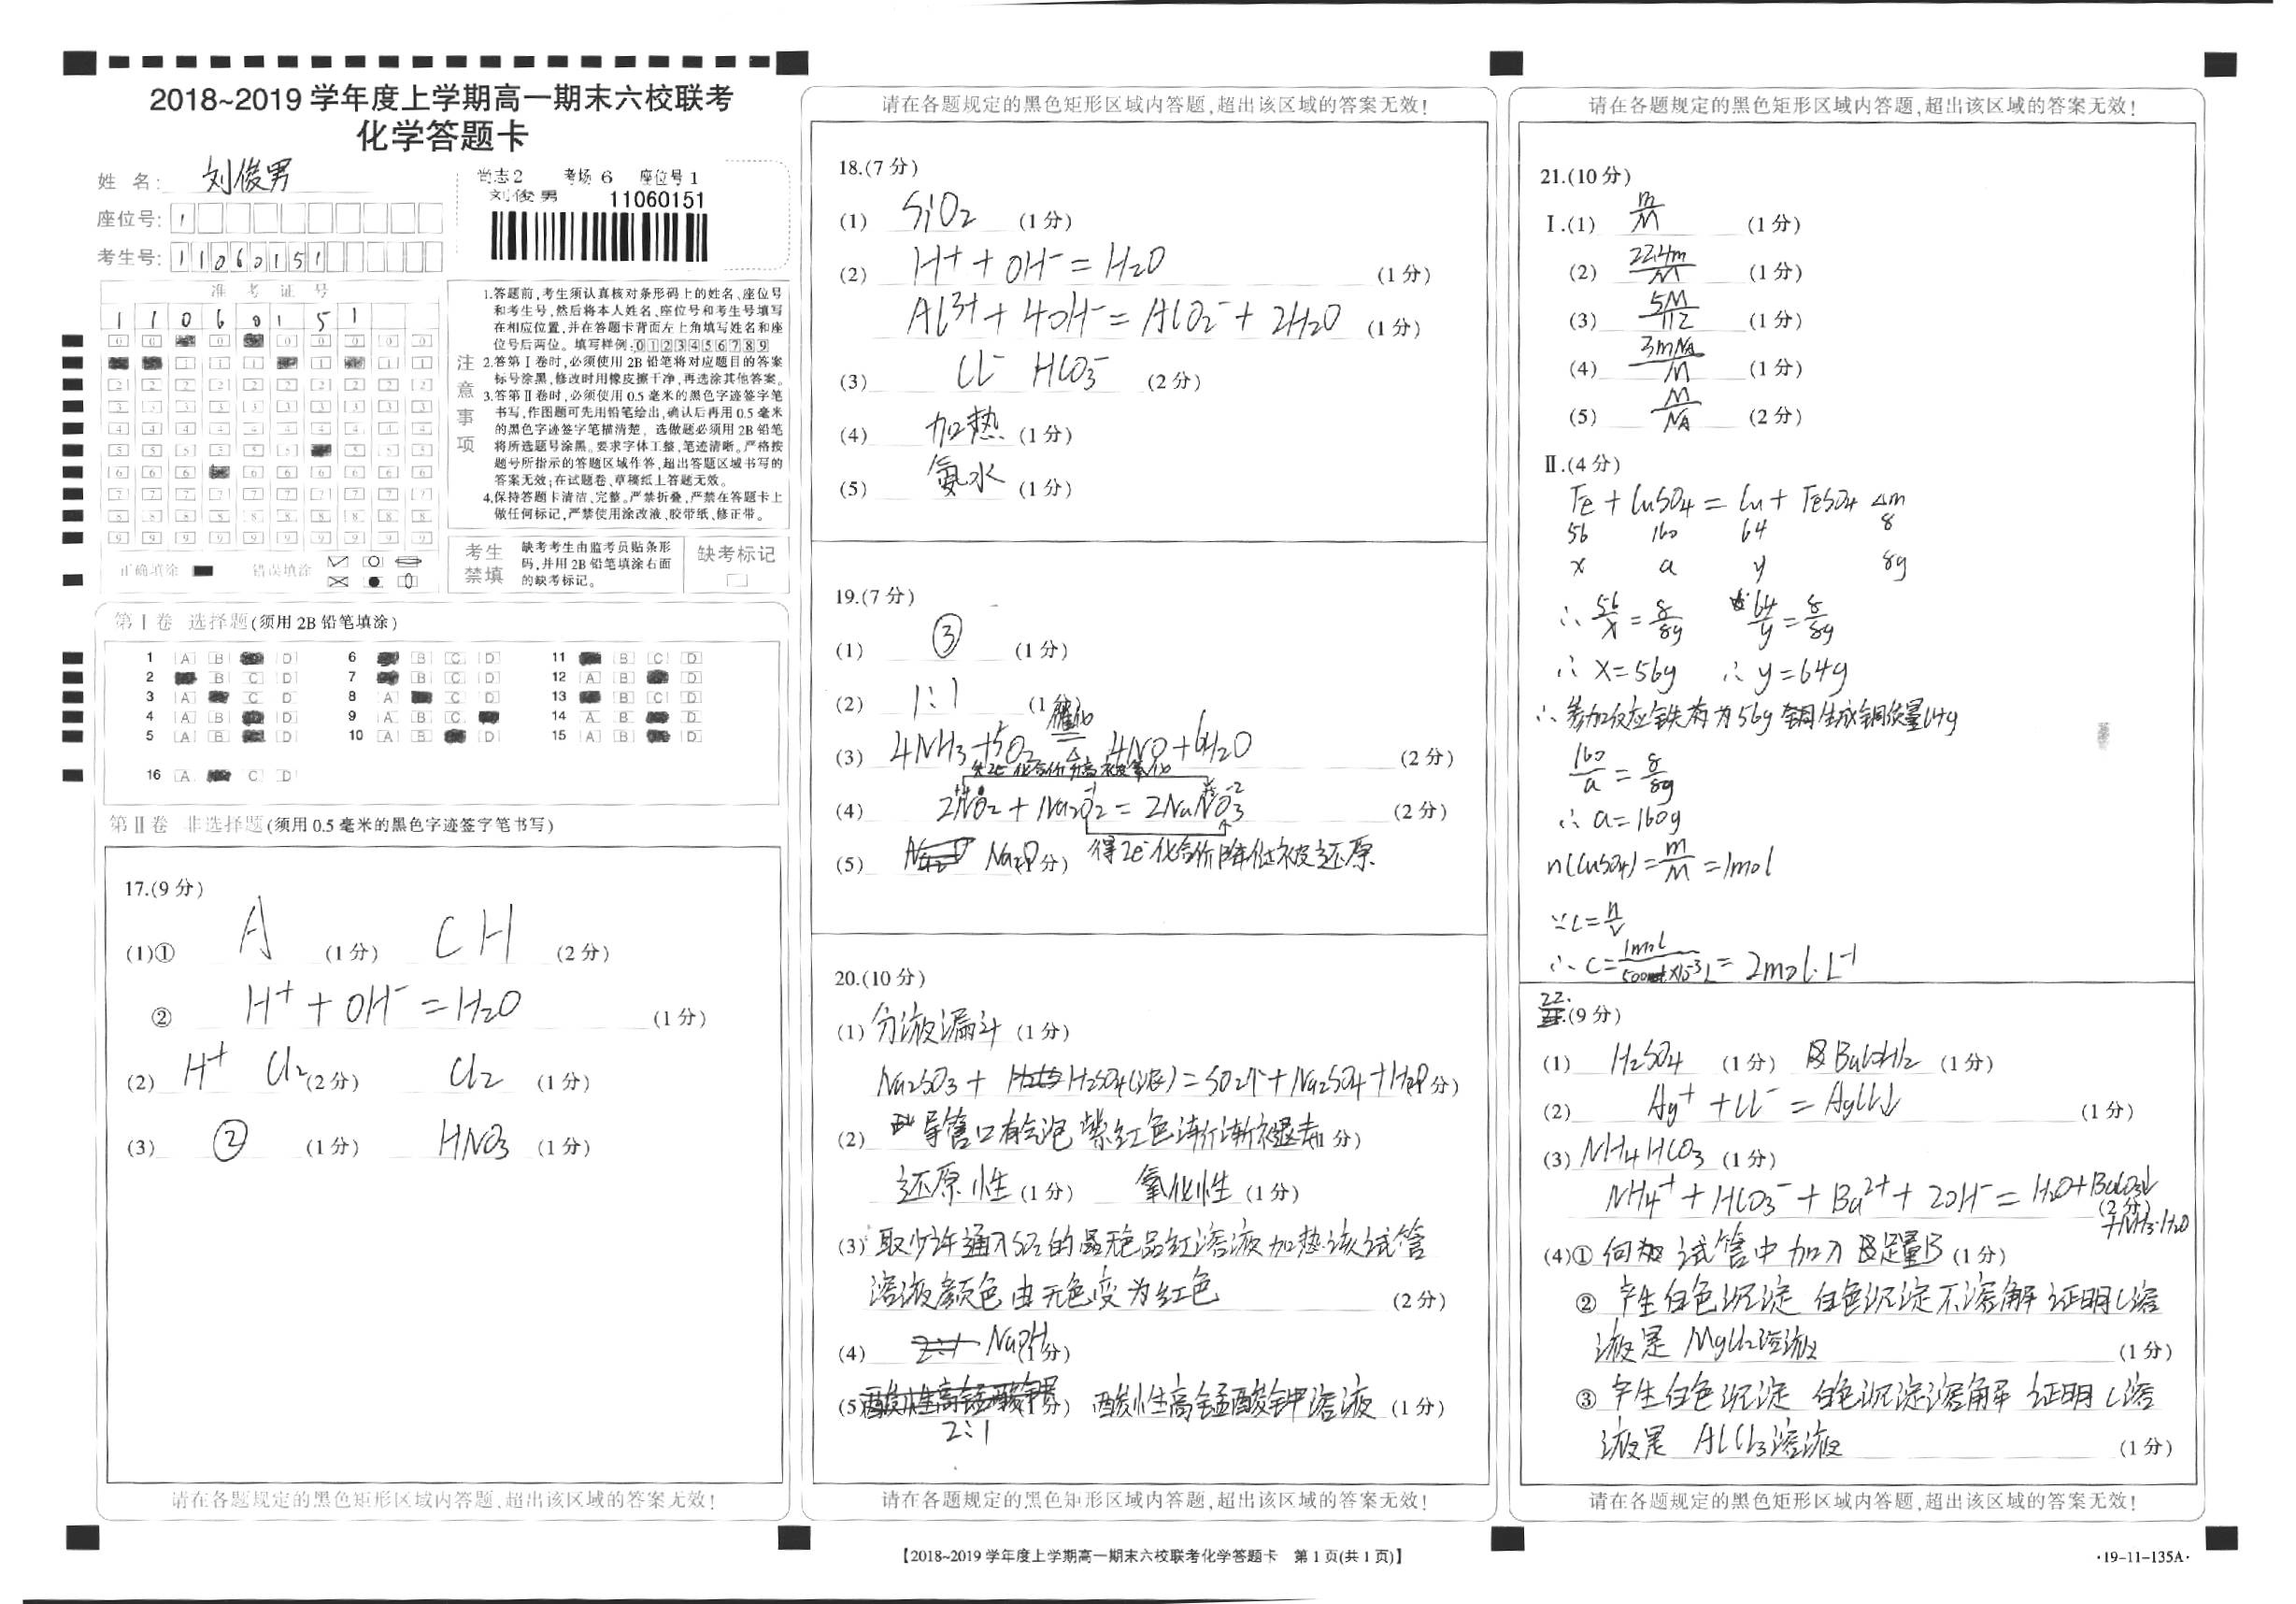 2018~2019 学年度上学期高一期末六校联考
化学答题卡
姓 名: 刘俊男
座位号: 1
考生号: 11060151
尚志2 考场 6 座位号 1
刘俊男 11060151
准 考 证 号
1 1 0 6 0 1 5 1
正确填涂 错误填涂
注意事项
1.答题前,考生须认真核对条形码上的姓名、座位号
和考生号,然后将本人姓名、座位号和考生号填写
在相应位置,并在答题卡背面左上角填写姓名和座
位号后两位。填写样例:0123456789
2.答第Ⅰ卷时,必须使用2B铅笔将对应题目的答案
标号涂黑,修改时用橡皮擦干净,再选涂其他答案。
3.答第Ⅱ卷时,必须使用0.5毫米的黑色字迹签字笔
书写,作图题可先用铅笔绘出,确认后再用0.5毫米
的黑色字迹签字笔描清楚。选做题必须用2B铅笔
将所选题号涂黑。要求字体工整,笔迹清晰。严格按
题号所指示的答题区域作答,超出答题区域书写的
答案无效;在试题卷、草稿纸上答题无效。
4.保持答题卡清洁、完整。严禁折叠,严禁在答题卡上
做任何标记,严禁使用涂改液、胶带纸、修正带。
考生禁填
缺考考生由监考员贴条形
码,并用2B铅笔填涂右面
的缺考标记。
缺考标记
第Ⅰ卷 选择题(须用2B铅笔填涂)
1 A B D 6 B C D 11 B C D
2 B C D 7 B C D 12 A B D
3 A C D 8 A C D 13 B C D
4 A B D 9 A B C 14 A B D
5 A B D 10 A B D 15 A B D
16 A C D
第Ⅱ卷 非选择题(须用0.5毫米的黑色字迹签字笔书写)
17.(9分)
(1)① A (1分) CH (2分)
② H⁺ + OH⁻ = H₂O (1分)
(2) H⁺ Cl₂ (2分) Cl₂ (1分)
(3) ② (1分) HNO₃ (1分)
请在各题规定的黑色矩形区域内答题,超出该区域的答案无效!
请在各题规定的黑色矩形区域内答题,超出该区域的答案无效!
18.(7分)
(1) SiO₂ (1分)
(2) H⁺ + OH⁻ = H₂O (1分)
Al³⁺ + 4OH⁻ = AlO₂⁻ + 2H₂O (1分)
(3) Cl⁻ HCO₃⁻ (2分)
(4) 加热 (1分)
(5) 氨水 (1分)
19.(7分)
(1) ③ (1分)
(2) 1:1 (1分)
(3) 4NH₃+5O₂ =催化 △= 4NO+6H₂O (2分)
失2e⁻化合价升高被氧化
(4) 2NO₂ + Na₂O₂ = 2NaNO₃ (2分)
得2e⁻化合价降低被还原
(5) Na₂O 分)
20.(10分)
(1) 分液漏斗 (1分)
Na₂SO₃ + H₂SO₄(浓) = SO₂↑ + Na₂SO₄ + H₂O 分)
(2) 导管口有气泡 紫红色渐渐褪去 1分)
还原性 (1分) 氧化性 (1分)
(3) 取少许通入SO₂的无色品红溶液加热该试管
溶液颜色由无色变为红色 (2分)
(4) NaOH 分)
(5 分) 酸性高锰酸钾溶液 (1分)
2:1
请在各题规定的黑色矩形区域内答题,超出该区域的答案无效!
请在各题规定的黑色矩形区域内答题,超出该区域的答案无效!
21.(10分)
Ⅰ.(1) m/M (1分)
(2) 22.4m/M (1分)
(3) 5M/112 (1分)
(4) 3mNA/M (1分)
(5) M/NA (2分)
Ⅱ.(4分)
Fe + CuSO₄ = Cu + FeSO₄ Δm
56 160 64 8
x a y 8g
∴ 56/x = 8/8g 64/y = 8/8g
∴ x=56g ∴ y=64g
∴参加反应铁为56g 生成铜质量64g
160/a = 8/8g
∴ a=160g
n(CuSO₄) = m/M = 1mol
∵ C = n/V
∴ C = 1mol/500×10⁻³L = 2mol·L⁻¹
22.(9分)
(1) H₂SO₄ (1分) Ba(OH)₂ (1分)
(2) Ag⁺ + Cl⁻ = AgCl↓ (1分)
(3) NH₄HCO₃ (1分)
NH₄⁺ + HCO₃⁻ + Ba²⁺ + 2OH⁻ = H₂O+BaCO₃↓
(2分)
+NH₃·H₂O
(4)① 向 试管中加入足量B (1分)
② 产生白色沉淀 白色沉淀不溶解 证明C溶
液是 MgCl₂溶液 (1分)
③ 产生白色沉淀 白色沉淀溶解 证明C溶
液是 AlCl₃溶液 (1分)
请在各题规定的黑色矩形区域内答题,超出该区域的答案无效!
【2018~2019学年度上学期高一期末六校联考化学答题卡 第1页(共1页)】
·19-11-135A·